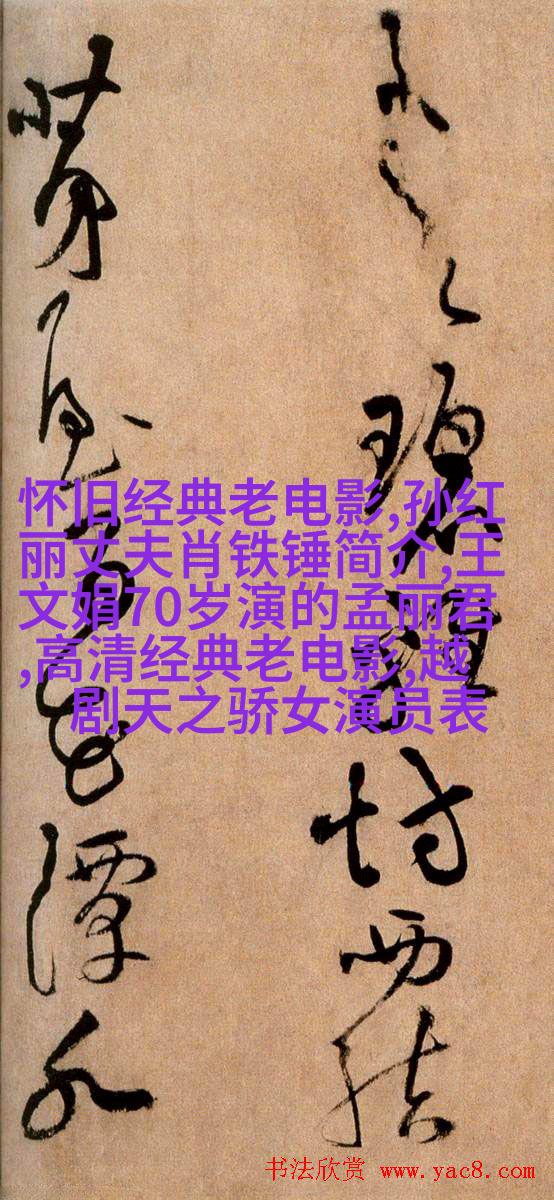 碧雞坊西結
茅屋百花潭水
怀旧经典老电影,孙红
丽丈夫肖铁锤简介,王
文娟70岁演的孟丽君
,高清经典老电影,越
剧天之骄女演员表
书法欣赏 www.yac8.com